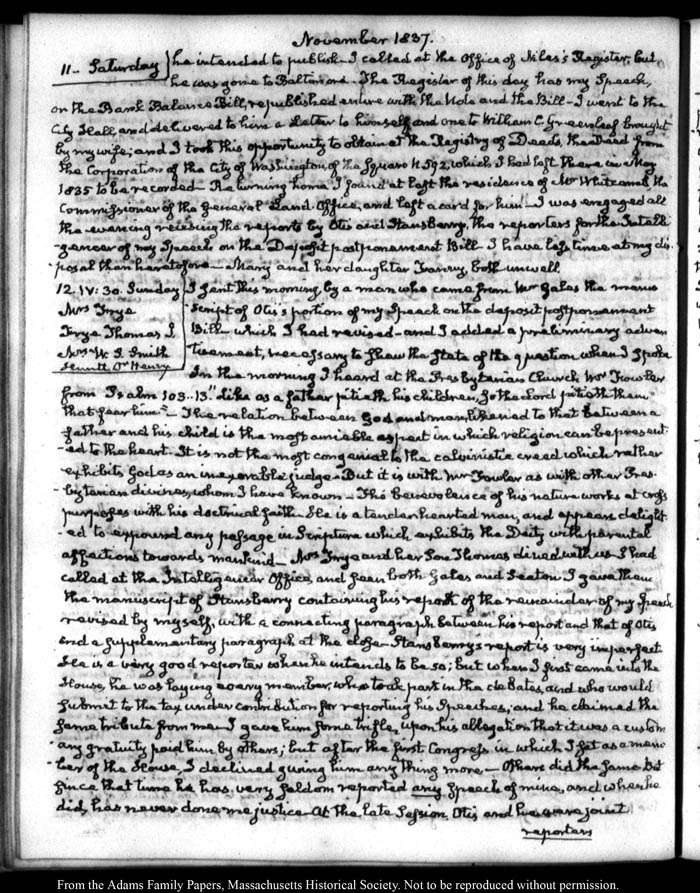 November 1837.
11.. Saturday he intended to publish. I called at the Office of Niles's Register; but,
he was gone to Baltimore. The Register of this day has my Speech,
on the Bank Balance Bill, republished entire with the Note and the Bill. I went to the
City Hall, and delivered to him a Letter to himself and one to William C. Greenleaf brought
by my wife; and I took this opportunity to obtain at the Registry of Deeds, the Deed from
the Corporation of the City of Washington, of the Square N. 592, which I had left there in May
1835 to be recorded. Returning home I found at last the residence of Mr Whitcomb the
Commissioner of the General Land Office, and left a card for him. I was engaged all
the evening revising the reports by Otis and Stansberry, the reporters for the Intelli-
gencer of my Speech on the Deposit postponement Bill. I have less time at my dis-
posal than heretofore. Mary and her daughter Fanny, both unwell
12. IV: 30. Sunday I sent this morning, by a man who came from Mr Gales the manu
Mrs Frye script of Otis's portion of my Speech on the deposit postponement
Frye Thomas J. Bill which I had revised and I added a preliminary adver
Mrs W. S. Smith tisement, necessary to shew the state of the question when I spoke
Henry In the morning I heard at the Presbyterian Church Mr Fowler
from Psalm 103..13. "Like as a father pitieth his children, so the Lord pitieth them
that fear him" The relation between God and man, likened to that between a
father and his child is the most amiable aspect in which religion can be present
-ed to the heart. It is not the most congenial to the calvinistic creed which rather
exhibits God as an inexorable judge. But it is with Mr Fowler as with other Pres-
byterian divines, whom I have known. The benevolence of his nature works at cross
purposes with his doctrinal faith. He is a tender hearted man, and appears delight-
-ed to expound any passage in Scripture which exhibits the Deity with parental
affections towards mankind. Mrs Frye and her Son Thomas dined with us. I had
called at the Intelligencer Office, and seen both Gales and Seaton. I gave them
the manuscript of Stansberry containing his report of the remainder of my Speech
revised by myself, with a connecting paragraph between his report and that of Otis
and a supplementary paragraph at the close. Stansberry's report is very imperfect
He is a very good reporter when he intends to be so; but when I first came into the
House, he was laying every member, who took part in the debates, and who would
submit to the tax under contribution for reporting his Speeches; and he claimed the
same tribute from me. I gave him some trifle, upon his allegation that it was a custom
any gratuity paid him by others; but after the first Congress in which I sat as a mem
ber of the House, I declined giving him any thing more. Others did the same but
since that time he has very seldom reported any Speech of mine, and when he
did, has never done me justice. At the late Session, Otis and he were joint
reporters
From the Adams Family Papers, Massachusetts Historical Society. Not to be reproduced without permission.